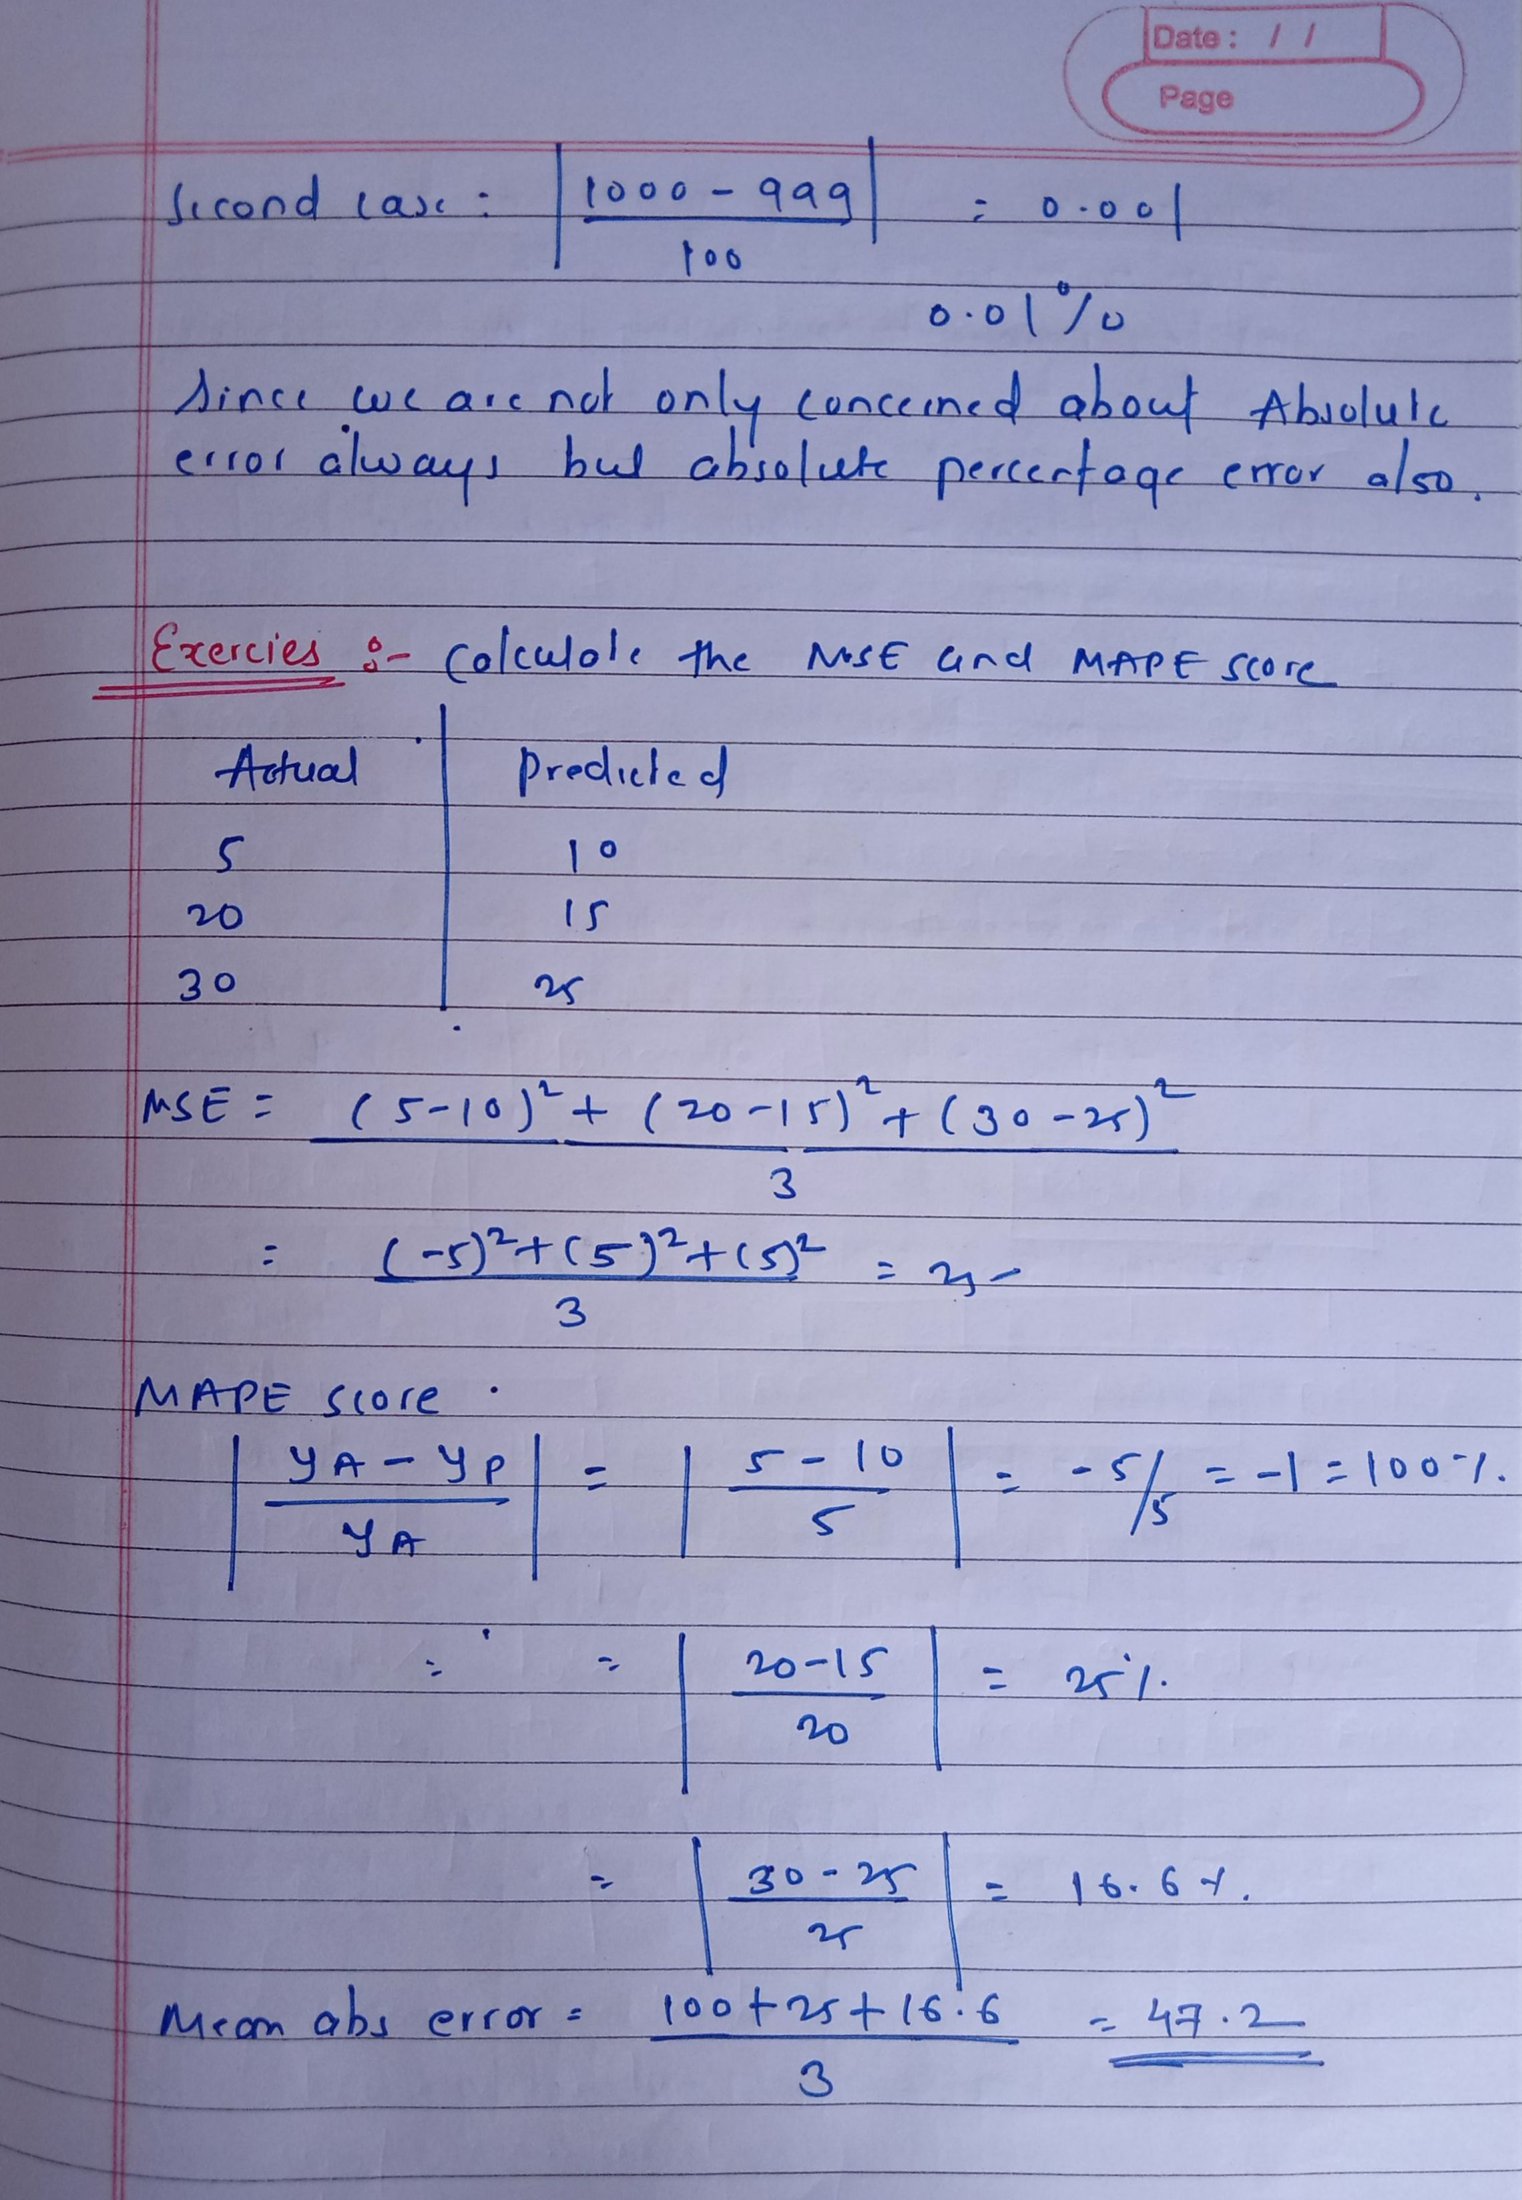 Date : / /
Page
Second case : | 1000 - 999 / 100 | = 0.001
0.01%
Since we are not only concerned about Absolute
error always but absolute percentage error also.
Exercies :- Calculate the MSE and MAPE score
Actual Predicted
5 10
20 15
30 25
MSE = (5-10)² + (20-15)² + (30-25)² / 3
= (-5)² + (5)² + (5)² / 3 = 25
MAPE score
| yA - yP / yA | = | 5-10 / 5 | = -5/5 = -1 = 100%.
= = | 20-15 / 20 | = 25%.
= | 30-25 / 25 | = 16.6%.
Mean abs error = 100+25+16.6 / 3 = 47.2